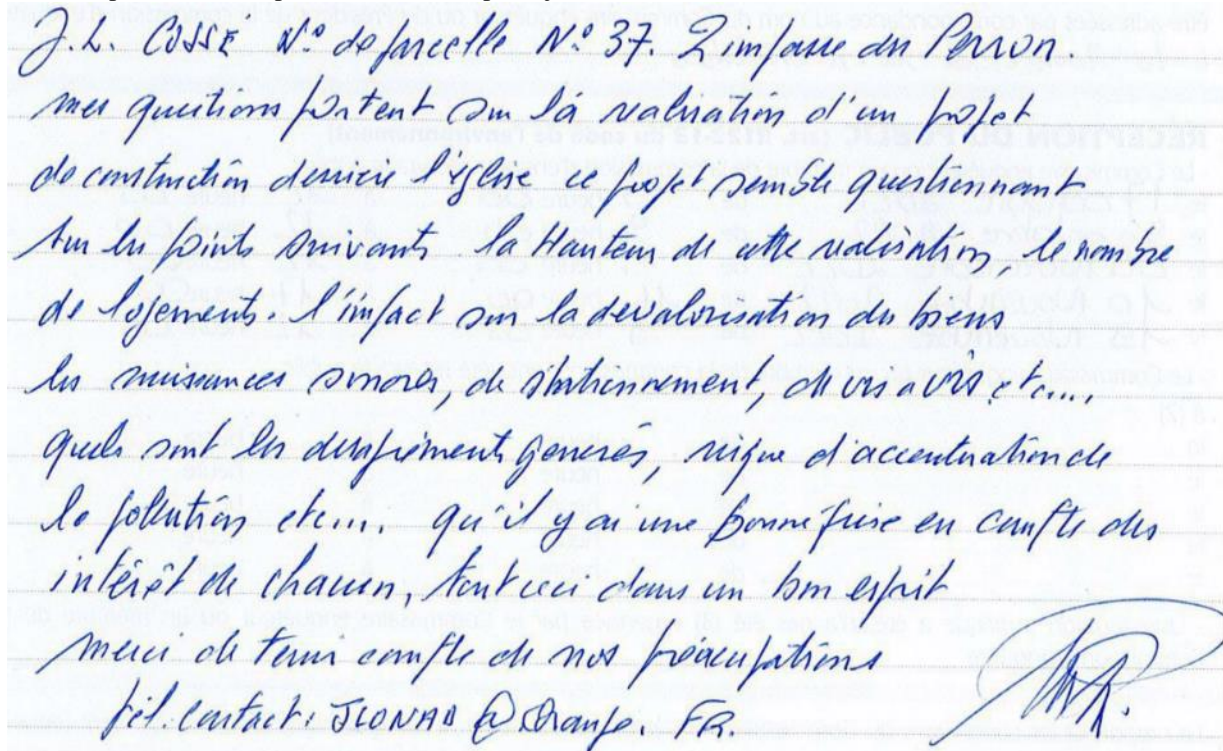 J.L. COSSE N.° de parcelle N.° 37. 2 impasse du Perron
mes questions portent sur la réalisation d'un projet
de construction derrière l'église ce projet semble questionnant
sur les points suivants la Hauteur de cette réalisation, le nombre
de logements. l'impact sur la dévalorisation des biens
les nuisances sonores, de stationnement, de vis à vis etc...
RÉCEPTION DU PUBLIC
quels sont les désagréments générés, risque d'accentuation de
la pollution etc... qu'il y ai une bonne prise en compte des
intérêt de chacun, tout ceci dans un bon esprit
merci de tenir compte de nos préoccupations